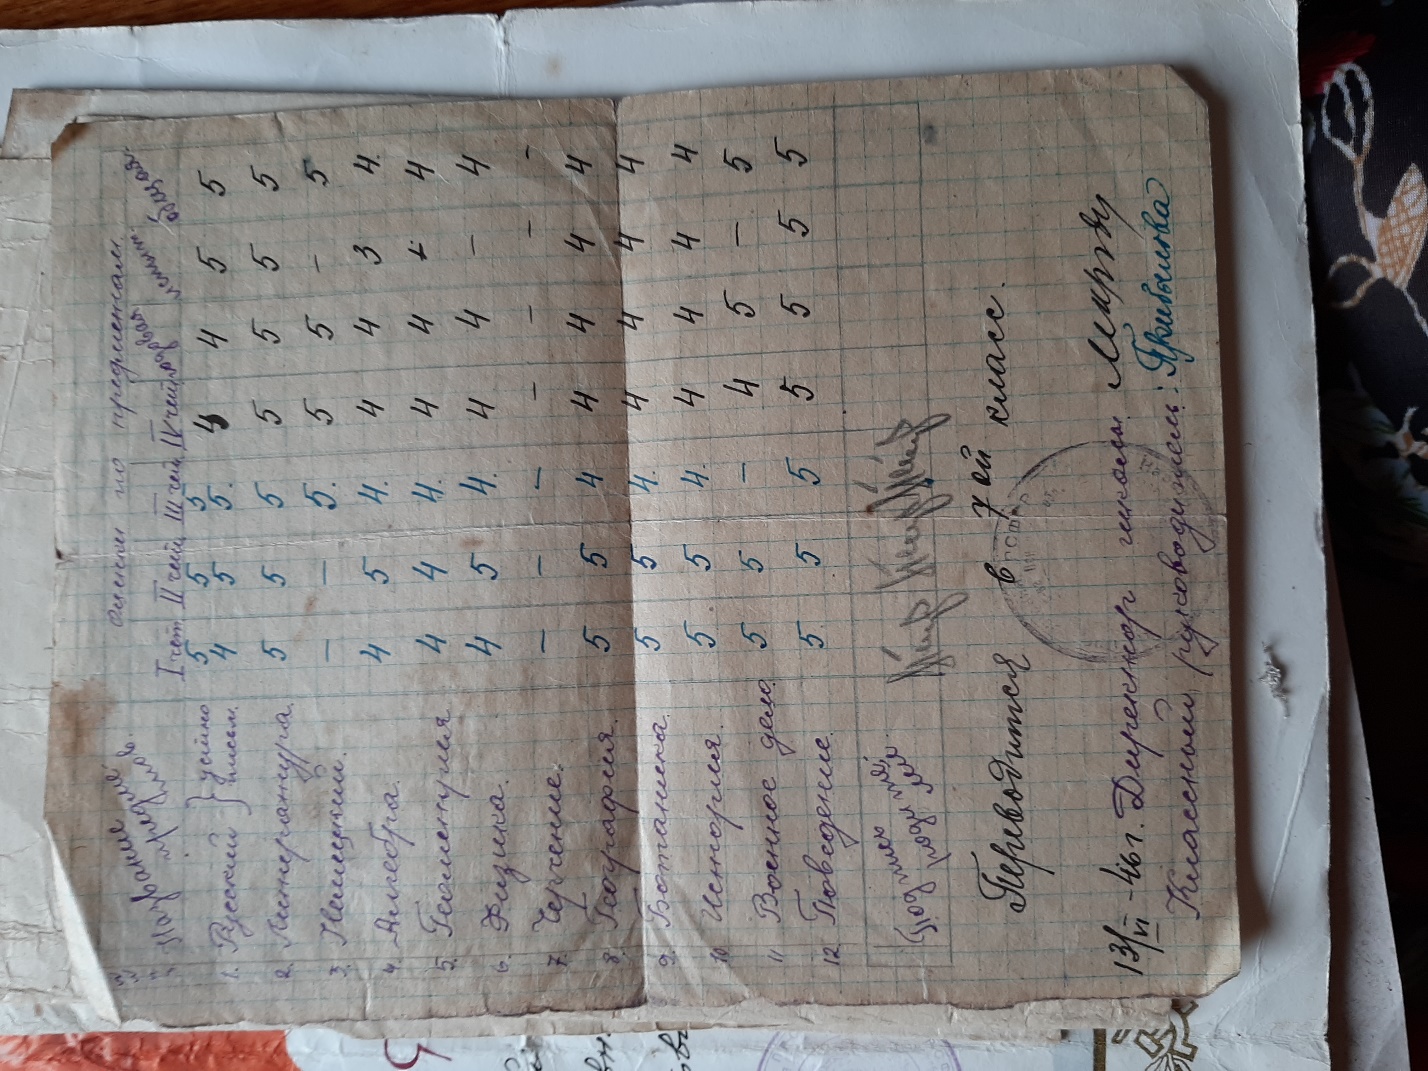 оценки по предметам
Название предметов. I чет II чет III чет IV чет годовая общая
1. Русский } устно 5 5 5
письм. 4 5 5. 4 4 5 5
2. Литература. 5 5 5 5 5 5 5
3. Немецкий. – – 5. 5 5 – 5
4. Алгебра. 4 5 4. 4 4 3 4.
5. Геометрия 4 4 4. 4 4 4
6. Физика. 4 5 4. 4 4 – 4
7. Черчение. – – – – – – -
8. География. 5 5 4 4 4 4 4
9. Ботаника. 5 5 4. 4 4 4 4
10. История. 5 5 4. 4 4 4 4
11 Военное дело. 5 5 – 4 5 – 5
12. Поведение. 5. 5 5 5 5 5 5
Подпись
родителей
Переводится в 7 ой класс.
13/VI -46 г. Директор школы
Классный руководитель: Прибылева